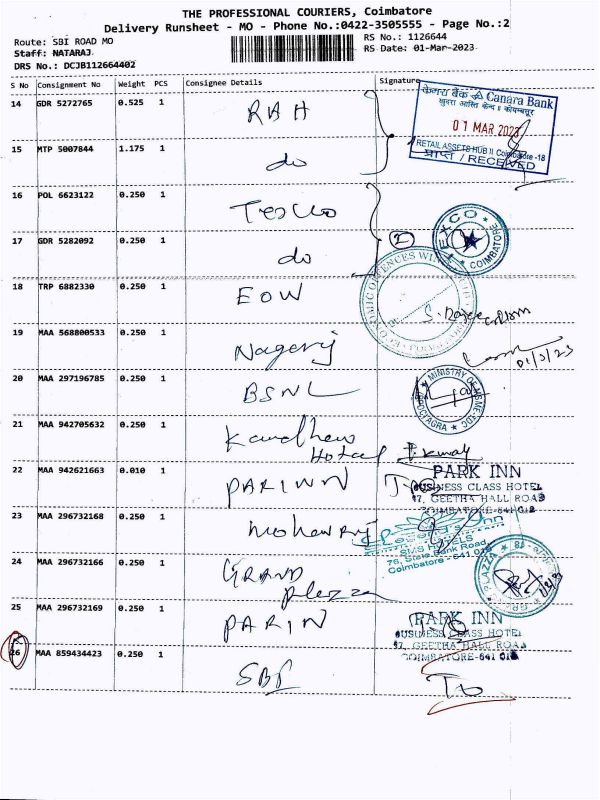 THE PROFESSIONAL COURIERS, Coimbatore
Delivery Runsheet - MO - Phone No.:0422-3505555 - Page No.:2
Route: SBI ROAD MO
RS No.: 1126644
Staff: NATARAJ
RS Date: 01-Mar-2023
DRS No.: DCJB112664402
S No Consignment No Weight PCS Consignee Details Signature
14 GDR 5272765 0.525 1 RAH
केनरा बैंक Canara Bank
01 MAR 2023
RETAIL ASSETS HUB II Coimbatore -18
प्राप्त / RECEIVED
15 MTP 5007844 1.175 1 do
16 POL 6623122 0.250 1 Texco
TEXCO COIMBATORE
17 GDR 5282092 0.250 1 do 2
18 TRP 6882330 0.250 1 EOW
19 MAA 568800533 0.250 1 Nagaraj
01/3/23
20 MAA 297196785 0.250 1 BSNL
21 MAA 942705632 0.250 1 Hotel
22 MAA 942621663 0.010 1 PARINN
PARK INN
BUSINESS CLASS HOTEL
37, GEETHA HALL ROAD
COIMBATORE-641 018
23 MAA 296732168 0.250 1 Mohanraj
Inn
SMS HOTELS
76, State Bank Road,
Coimbatore - 641 018
24 MAA 296732166 0.250 1 GRAND
plazza
PLAZZA
25 MAA 296732169 0.250 1 PARIN
PARK INN
BUSINESS CLASS HOTEL
37, GEETHA HALL ROAD
COIMBATORE-641 018
26 MAA 859434423 0.250 1 SBI